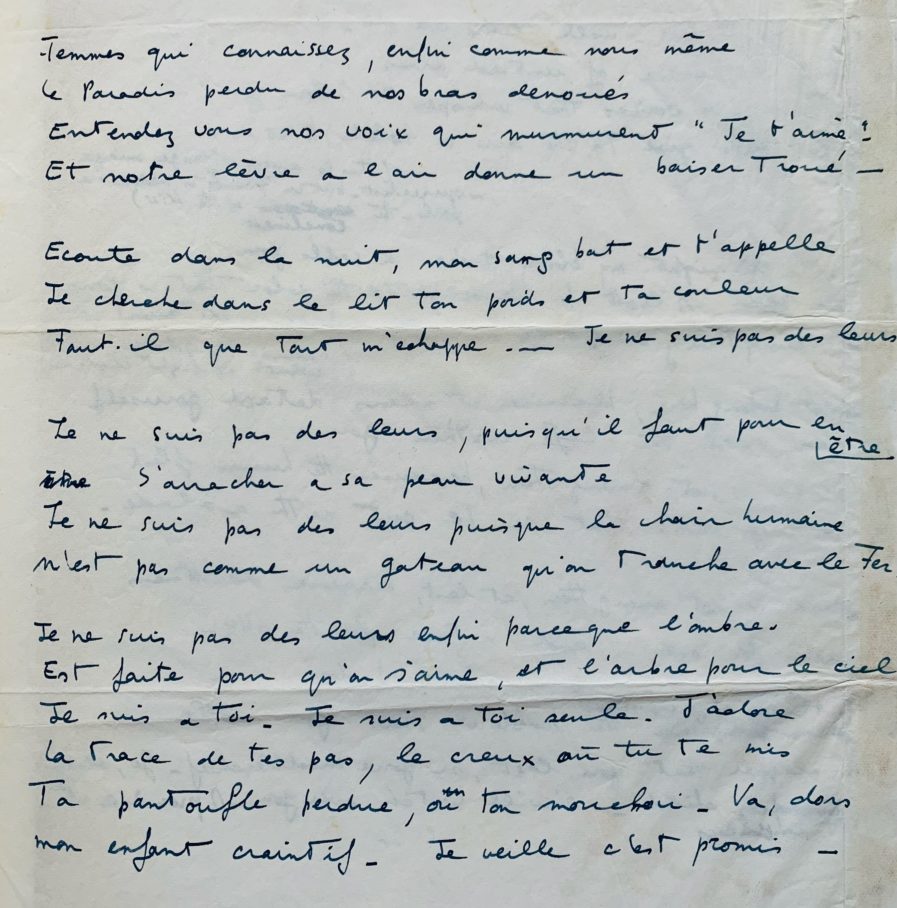 Femmes qui connaissez, enfin comme nous même
le Paradis perdu de nos bras denoués
Entendez vous nos voix qui murmurent " Je t'aime "
Et notre lèvre a l'air donne un baiser Troué —
Ecoute dans la nuit, mon sang bat et t'appelle
Je cherche dans le lit ton poids et ta couleur
Faut-il que Tout m'echappe . — Je ne suis pas des leurs
Je ne suis pas des leurs, puisqu'il faut pour en
être
être S'arracher a sa peau vivante
Je ne suis pas des leurs puisque la chair humaine
n'est pas comme un gateau qu'on Tranche avec le Fer
Je ne suis pas des leurs enfin parceque l'ombre.
Est faite pour qu'on s'aime, et l'arbre pour le ciel
Je suis a toi. Je suis a toi seule. J'adore
la Trace de tes pas, le creux où tu te mis
Ta pantoufle perdue, ou ton mouchoir - Va, dors
mon enfant craintif - Je veille c'est promis —